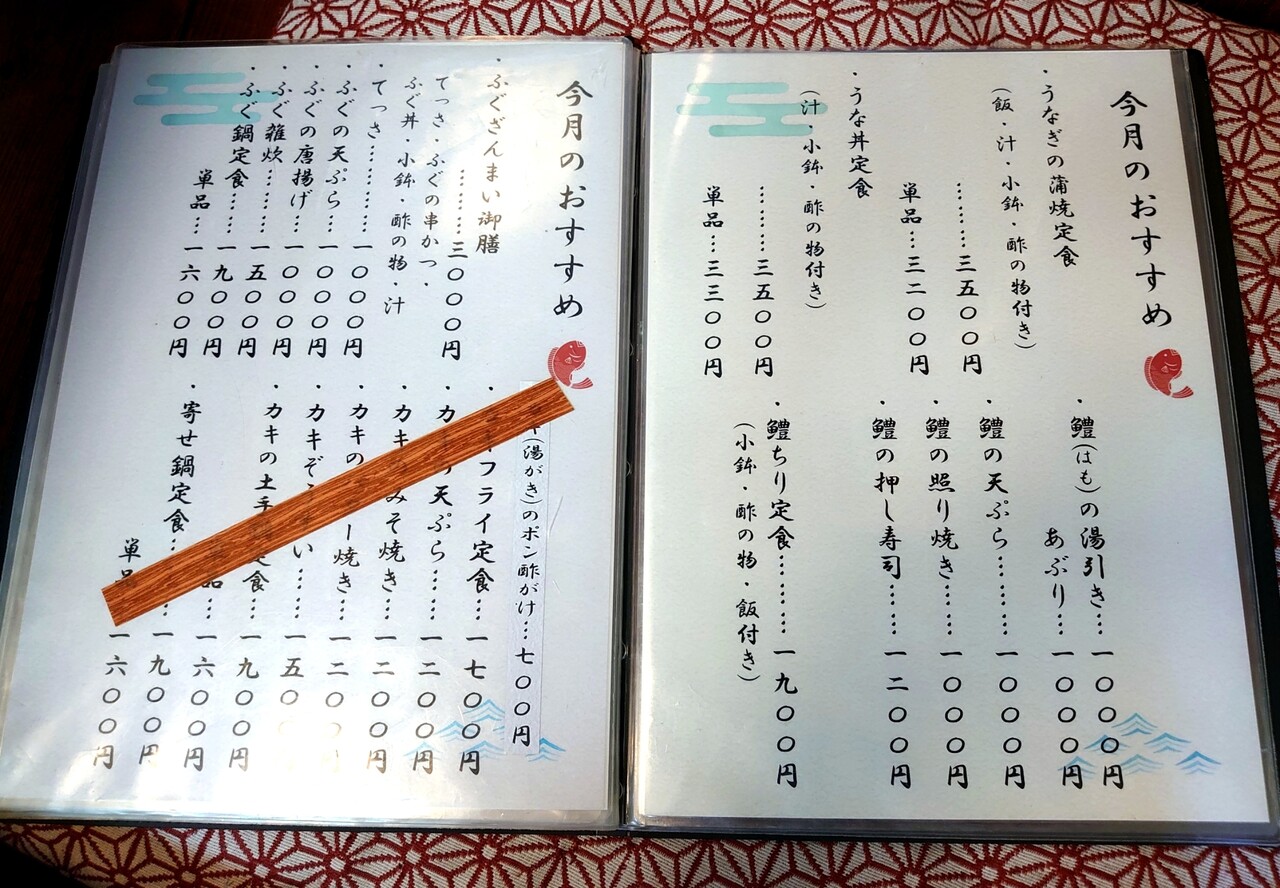 今月のおすすめ
・うなぎの蒲焼定食
(飯・汁・小鉢・酢の物付き)
………三五〇〇円
単品…三二〇〇円
・うな丼定食
(汁・小鉢・酢の物付き)
………三五〇〇円
単品…三三〇〇円
・鱧(はも)の湯引き…一〇〇〇円
あぶり…一〇〇〇円
・鱧の天ぷら……一〇〇〇円
・鱧の照り焼き…一〇〇〇円
・鱧の押し寿司……一二〇〇円
・鱧ちり定食………一九〇〇円
(小鉢・酢の物・飯付き)
今月のおすすめ
・ふぐざんまい御膳
………三〇〇〇円
てっさ・ふぐの串かつ・
ふぐ丼・小鉢・酢の物・汁
・てっさ………一〇〇〇円
・ふぐの天ぷら…一〇〇〇円
・ふぐの唐揚げ…一〇〇〇円
・ふぐ雑炊………一五〇〇円
・ふぐ鍋定食……一九〇〇円
単品…一六〇〇円
(湯がき)のポン酢がけ…七〇〇円
・フライ定食…一七〇〇円
・カ 天ぷら……一二〇〇円
・カキ みそ焼き…一二〇〇円
・カキの ー焼き…一二〇〇円
・カキぞう い…一五〇
・カキの土手 定食…一九〇〇円
品…一六〇〇円
・寄せ鍋定食……一九〇〇円
単品 一六〇〇円